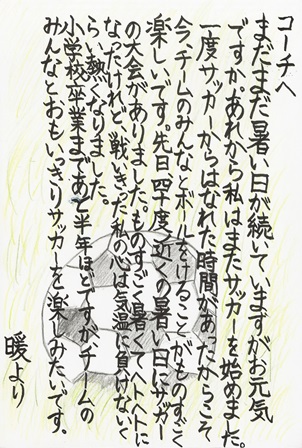 コーチへ
まだまだ暑い日が続いていますがお元気
ですか。あれから私はまたサッカーを始めました。
一度サッカーからはなれた時間があったからこそ
今、チームのみんなとボールをけることがものすごく
楽しいです。先日四十度近くの暑い日にサッカー
の大会がありました。ものすごく暑くてヘトヘトに
なったけれど、戦いきった私の心は気温に負けないく
らい熱くなりました。
小学校卒業まであと半年ほどですがチームの
みんなとおもいっきりサッカーを楽しみたいです。
暖より